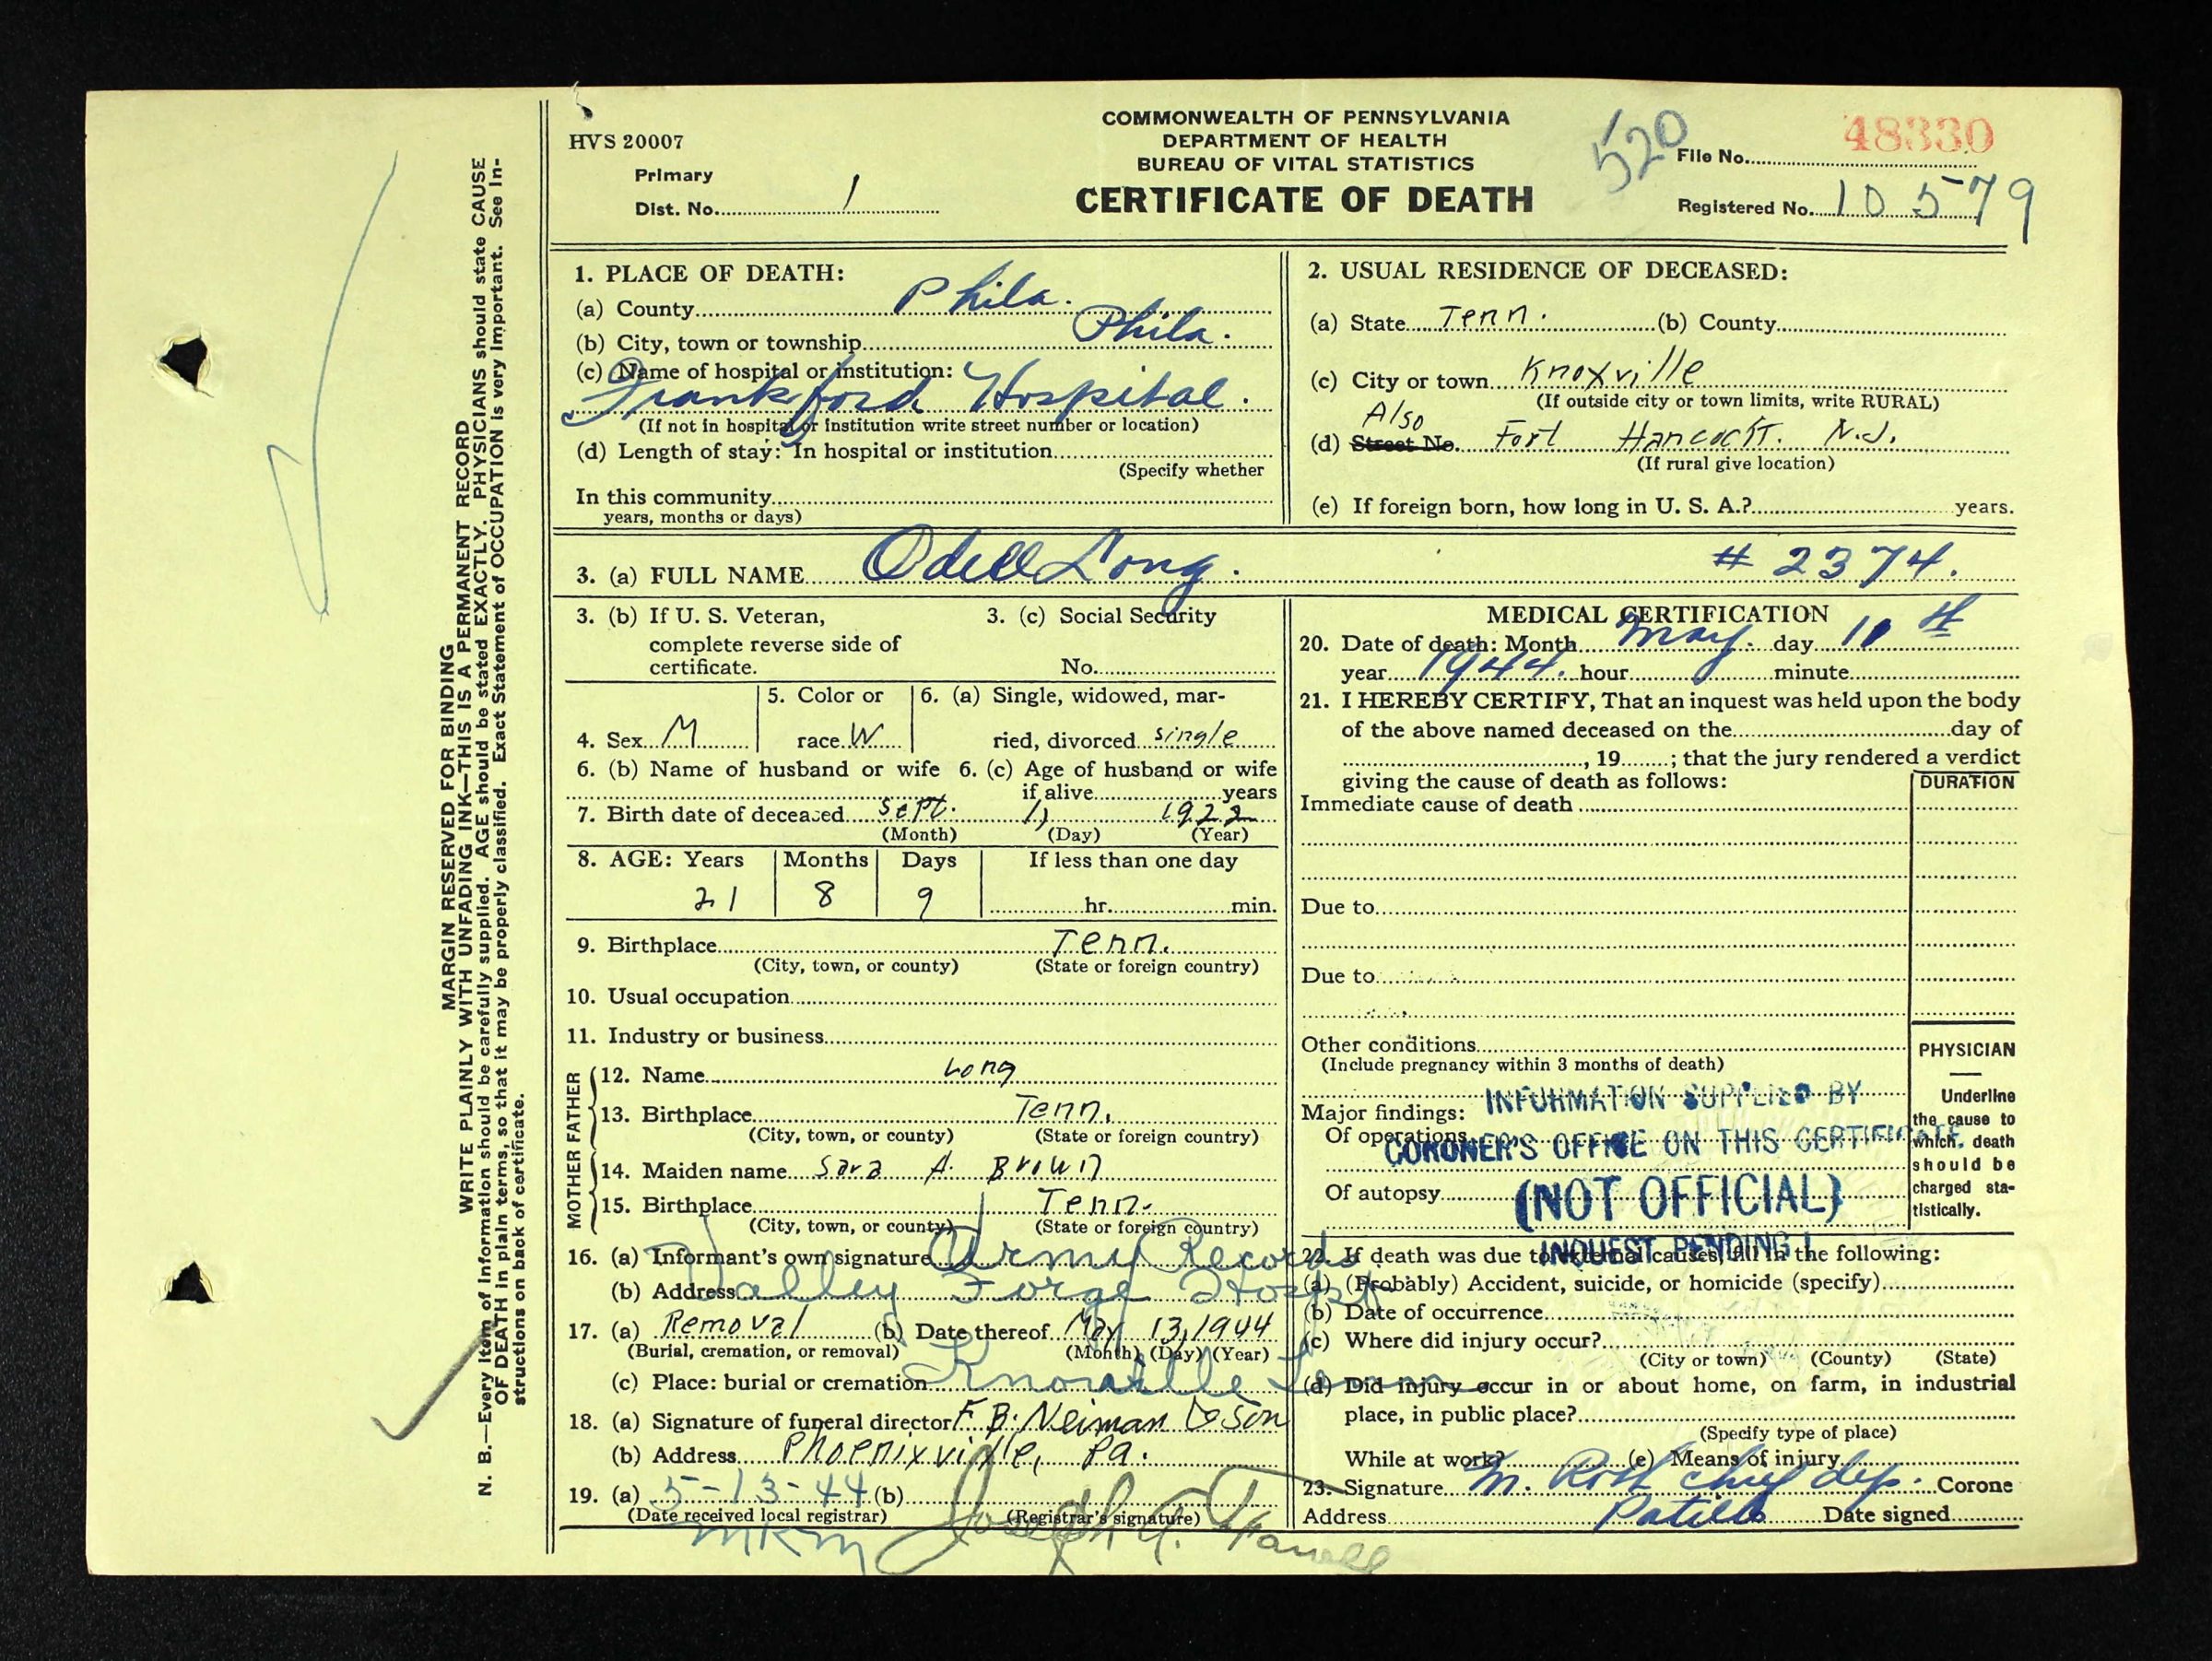 HVS 20007
COMMONWEALTH OF PENNSYLVANIA
DEPARTMENT OF HEALTH
BUREAU OF VITAL STATISTICS
CERTIFICATE OF DEATH
520
File No. 48330
Primary
Dist. No. 1
Registered No. 10579
MARGIN RESERVED FOR BINDING
WRITE PLAINLY WITH UNFADING INK—THIS IS A PERMANENT RECORD
N. B.—Every item of information should be carefully supplied. AGE should be stated EXACTLY. PHYSICIANS should state CAUSE
OF DEATH in plain terms, so that it may be properly classified. Exact Statement of OCCUPATION is very important. See In-
structions on back of certificate.
1. PLACE OF DEATH:
(a) County Phila.
(b) City, town or township Phila.
(c) Name of hospital or institution:
Frankford Hospital.
(If not in hospital or institution write street number or location)
(d) Length of stay: In hospital or institution
(Specify whether
In this community
years, months or days)
2. USUAL RESIDENCE OF DECEASED:
(a) State Tenn. (b) County
(c) City or town Knoxville
(If outside city or town limits, write RURAL)
Also
(d) Street No. Fort Hancock. N.J.
(If rural give location)
(e) If foreign born, how long in U. S. A.? years.
3. (a) FULL NAME Odell Long. # 2374.
3. (b) If U. S. Veteran,
complete reverse side of
certificate.
3. (c) Social Security
No.
4. Sex M
5. Color or
race W
6. (a) Single, widowed, mar-
ried, divorced single
6. (b) Name of husband or wife
6. (c) Age of husband or wife
if alive years
7. Birth date of deceased Sept. 1, 1922
(Month) (Day) (Year)
8. AGE: Years Months Days If less than one day
21 8 9 hr. min.
9. Birthplace Tenn.
(City, town, or county) (State or foreign country)
10. Usual occupation
11. Industry or business
FATHER
12. Name Long
13. Birthplace Tenn.
(City, town, or county) (State or foreign country)
MOTHER
14. Maiden name Sara A. Brown
15. Birthplace Tenn.
(City, town, or county) (State or foreign country)
16. (a) Informant's own signature Army Records
(b) Address Valley Forge Hosp
17. (a) Removal (b) Date thereof May 13, 1944
(Burial, cremation, or removal) (Month) (Day) (Year)
(c) Place: burial or cremation Knoxville Tenn
18. (a) Signature of funeral director F. B. Neiman & Son
(b) Address Phoenixville, Pa.
19. (a) 5-13-44 (b)
(Date received local registrar) (Registrar's signature)
MKM Joseph A.
MEDICAL CERTIFICATION
20. Date of death: Month May. day 10 th
year 1944. hour minute
21. I HEREBY CERTIFY, That an inquest was held upon the body
of the above named deceased on the day of
, 19 ; that the jury rendered a verdict
giving the cause of death as follows:
DURATION
Immediate cause of death
Due to
Due to
Other conditions
(Include pregnancy within 3 months of death)
PHYSICIAN
Underline
the cause to
which death
should be
charged sta-
tistically.
Major findings:
Of operations
Of autopsy
INFORMATION SUPPLIED BY
CORONER'S OFFICE ON THIS CERTIFICATE
(NOT OFFICIAL)
INQUEST PENDING!
22. If death was due to external causes, fill in the following:
(a) (Probably) Accident, suicide, or homicide (specify)
(b) Date of occurrence
(c) Where did injury occur?
(City or town) (County) (State)
(d) Did injury occur in or about home, on farm, in industrial
place, in public place?
(Specify type of place)
While at work? (e) Means of injury
23. Signature M. chief dep. Corone
Address Date signed